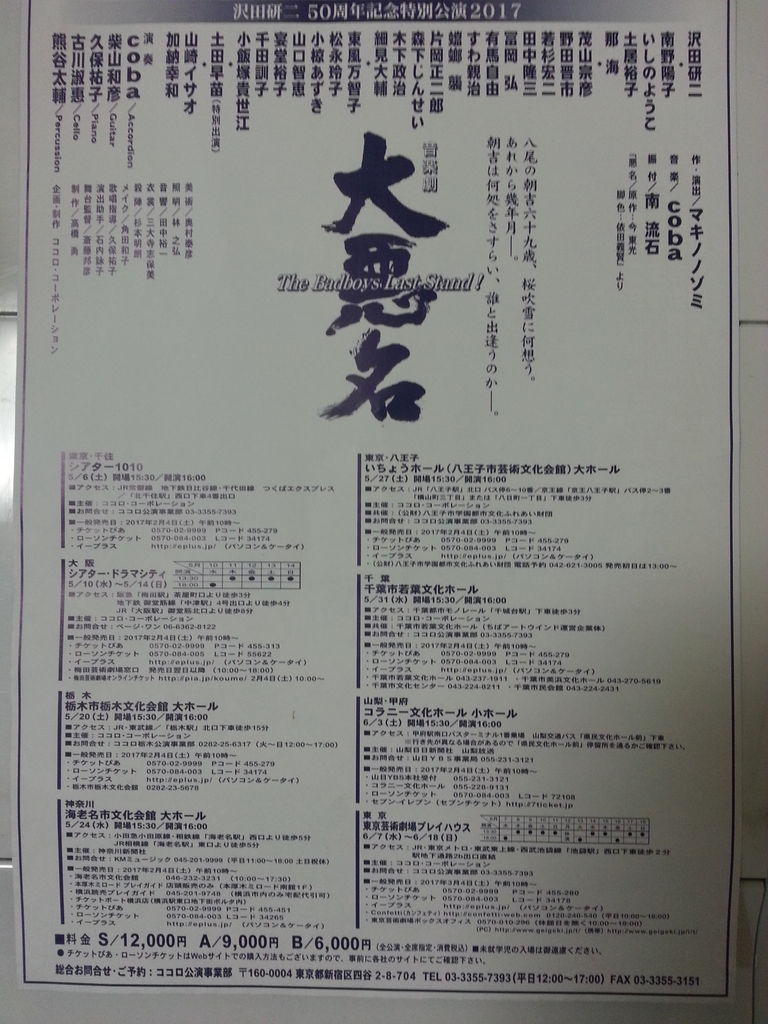 沢田研二 50周年記念特別公演2017
沢田研二
南野陽子
いしのようこ
土居裕子
那 海
・
茂山宗彦
野田晋市
若杉宏二
田中隆三
冨岡 弘
有馬自由
すわ親治
蟷螂 襲
片岡正二郎
森下じんせい
木下政治
細見大輔
・
東風万智子
松永玲子
小椋あずき
山口智恵
宴堂裕子
千田訓子
小飯塚貴世江
・
土田早苗(特別出演)
・
山崎イサオ
加納幸和
演奏
coba/Accordion
柴山和彦/Guitar
久保祐子/Piano
古川淑惠/Cello
熊谷太輔/Percussion
作・演出/マキノノゾミ
音楽/coba
振付/南 流石
「悪名」原作:今 東光
脚色:依田義賢 より
八尾の朝吉六十九歳、桜吹雪に何想う。
あれから幾年月―。
朝吉は何処をさすらい、誰と出逢うのか―。
音楽劇
大悪名
The Badboys Last Stand!
美術/奥村泰彦
照明/林 之弘
音響/田中裕一
衣裳/三大寺志保美
殺陣/杉本明朗
メイク/角田和子
歌唱指導/久保祐子
演出助手/石内詠子
舞台監督/斎藤邦彦
制作/高橋 勇
企画・制作 ココロ・コーポレーション
東京・千住
シアター1010
5/6(土) 開場15:30/開演16:00
■アクセス:JR常磐線 地下鉄日比谷線・千代田線 つくばエクスプレス
/「北千住駅」西口下車4番出口
■主催:ココロ・コーポレーション
■お問合せ:ココロ公演事業部 03-3355-7393
■一般発売日:2017年2月4日(土) 午前10時〜
・チケットぴあ 0570-02-9999 Pコード 455-279
・ローソンチケット 0570-084-003 Lコード 34174
・イープラス http://eplus.jp/ (パソコン&ケータイ)
大 阪
シアター・ドラマシティ
5/10(水)〜5/14(日)
5月 10 11 12 13 14
開演 水 木 金 土 日
13:30
18:00
■アクセス:阪急「梅田駅」茶屋町口より徒歩3分
地下鉄 御堂筋線「中津駅」4号出口より徒歩4分
JR「大阪駅」御堂筋北口より徒歩8分
■主催:ココロ・コーポレーション
■お問合せ:ページ・ワン 06-6362-8122
■一般発売日:2017年2月4日(土) 午前10時〜
・チケットぴあ 0570-02-9999 Pコード 455-313
・ローソンチケット 0570-084-005 Lコード 55622
・イープラス http://eplus.jp/ (パソコン&ケータイ)
・梅田芸術劇場窓口 発売翌日以降 (10:00〜18:00)
・梅田芸術劇場オンラインチケット http://pia.jp/koume/ 2月4日(土) 10:00〜
栃 木
栃木市栃木文化会館 大ホール
5/20(土) 開場15:30/開演16:00
■アクセス:JR・東武線/「栃木駅」北口下車徒歩15分
■主催:ココロ・コーポレーション
■お問合せ:ココロ栃木公演事業部 0282-25-6317 (火〜日12:00〜17:00)
■一般発売日:2017年2月4日(土) 午前10時〜
・チケットぴあ 0570-02-9999 Pコード 455-279
・ローソンチケット 0570-084-003 Lコード 34174
・イープラス http://eplus.jp/ (パソコン&ケータイ)
・栃木市栃木文化会館 0282-23-5678
神奈川
海老名市文化会館 大ホール
5/24(水) 開場15:30/開演16:00
■アクセス:小田急小田原線・相鉄線「海老名駅」西口より徒歩5分
JR相模線「海老名駅」東口より徒歩5分
■主催:神奈川新聞社
■お問合せ:KMミュージック 045-201-9999 (平日11:00〜18:00 土日祝休)
■一般発売日:2017年2月4日(土) 午前10時〜
・海老名市文化会館 046-232-3231 (10:00〜17:30)
・本厚木ミロード プレイガイド 店頭販売のみ (本厚木ミロード南館1F)
・横浜読売プレイガイド 045-201-9748 (横浜市内のみ宅配代引可)
・チケットポート横浜店 (横浜駅東口地下街ポルタ内)
・チケットぴあ 0570-02-9999 Pコード 455-451
・ローソンチケット 0570-084-003 Lコード 34265
・イープラス http://eplus.jp/ (パソコン&ケータイ)
東京・八王子
いちょうホール(八王子市芸術文化会館)大ホール
5/27(土) 開場15:30/開演16:00
■アクセス:JR「八王子駅」北口 バス停6〜10番/京王線「京王八王子駅」バス停2〜3番
「横山町三丁目」または「八日町一丁目」下車徒歩3分
■主催:ココロ・コーポレーション
■共催:(公財)八王子市学園都市文化ふれあい財団
■お問合せ:ココロ公演事業部 03-3355-7393
■一般発売日:2017年2月4日(土) 午前10時〜
・チケットぴあ 0570-02-9999 Pコード 455-279
・ローソンチケット 0570-084-003 Lコード 34174
・イープラス http://eplus.jp/ (パソコン&ケータイ)
・(公財)八王子市学園都市文化ふれあい財団 電話予約 042-621-3005 発売初日は13:00〜
千 葉
千葉市若葉文化ホール
5/31(水) 開場15:30/開演16:00
■アクセス:千葉都市モノレール「千城台駅」下車徒歩3分
■主催:ココロ・コーポレーション
■共催:千葉市若葉文化ホール (ちばアートウインド運営企業体)
■お問合せ:ココロ公演事業部 03-3355-7393
■一般発売日:2017年2月4日(土) 午前10時〜
・チケットぴあ 0570-02-9999 Pコード 455-279
・ローソンチケット 0570-084-003 Lコード 34174
・イープラス http://eplus.jp/ (パソコン&ケータイ)
・千葉市若葉文化ホール 043-237-1911 ・千葉市美浜文化ホール 043-270-5619
・千葉市文化センター 043-224-8211 ・千葉市民会館 043-224-2431
山梨・甲府
コラニー文化ホール 小ホール
6/3(土) 開場15:30/開演16:00
■アクセス:甲府駅南口バスターミナル1番乗場 山梨交通バス「県民文化ホール前」下車
※行き先が異なる場合があるので「県民文化ホール前」停留所を通るかご確認下さい。
■主催:山梨日日新聞社 山梨放送
■お問合せ:山日YBS事業局 055-231-3121
■一般発売日:2017年2月4日(土) 午前10時〜
・山日YBS本社受付 055-231-3121
・コラニー文化ホール 055-228-9131
・ローソンチケット 0570-084-003 Lコード 72108
・セブン-イレブン (セブンチケット) http://7ticket.jp
東 京
東京芸術劇場プレイハウス
6/7(水)〜6/18(日)
■アクセス:JR・東京メトロ・東武東上線・西武池袋線「池袋駅」西口下車徒歩2分
駅地下通路2b出口直結
■主催:ココロ・コーポレーション
■お問合せ:ココロ公演事業部 03-3355-7393
■一般発売日:2017年3月4日(土) 午前10時〜
・チケットぴあ 0570-02-9999 Pコード 455-280
・ローソンチケット 0570-084-003 Lコード 34178
・イープラス http://eplus.jp/ (パソコン&ケータイ)
・Confetti(カンフェティ) http://confetti-web.com 0120-240-540 (平日10:00〜18:00)
・東京芸術劇場ボックスオフィス 0570-010-296 (休館日を除く10:00〜19:00)
(PC) http://www.geigeki.jp/t/ (携帯) http://www.geigeki.jp/i/t/
■料金 S/12,000円 A/9,000円 B/6,000円 (全公演・全席指定・消費税込) ■未就学児の入場は御遠慮ください。
●チケットぴあ・ローソンチケットはWebサイトでの購入方法もございますので、事前に各社のサイトにてご確認下さい。
総合お問合せ・ご予約:ココロ公演事業部 〒160-0004 東京都新宿区四谷 2-8-704 TEL 03-3355-7393(平日12:00〜17:00) FAX 03-3355-3151